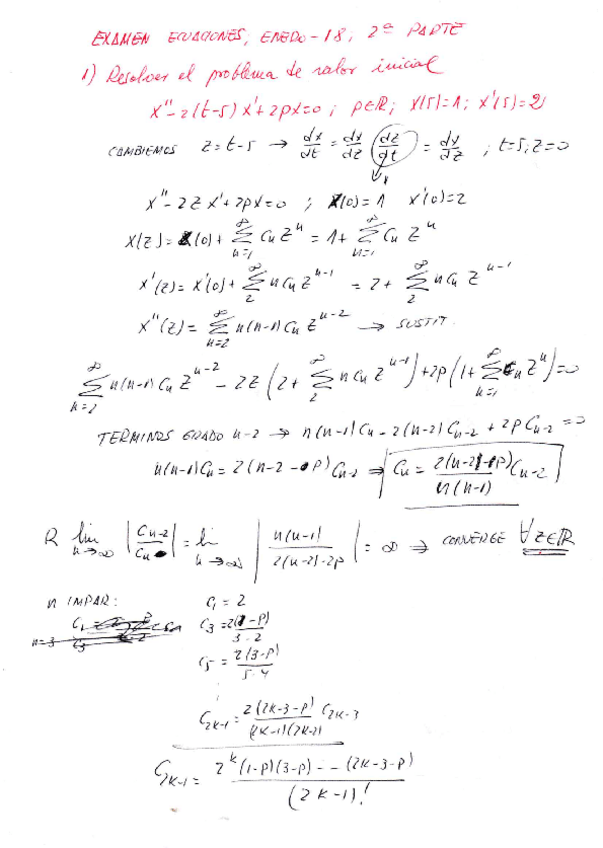 EXAMEN ECUACIONES, ENERO-18; 2ª PARTE
1) Resolver el problema de valor inicial
x''-2(t-5)x'+2px=0; p∈R; x(5)=1; x'(5)=2
CAMBIEMOS z=t-5 → dx/dt = dx/dz (dz/dt) = dx/dz ; t=5; z=0
1
x''-2zx'+2px=0 ; x(0)=1 x'(0)=2
x(z)=x(0)+∑_{n=1}^∞ Cn z^n = 1+∑_{n=1}^∞ Cn z^n
x'(z)=x'(0)+∑_2^∞ nCn z^{n-1} = 2+∑_2^∞ nCn z^{n-1}
x''(z)=∑_{n=2}^∞ n(n-1)Cn z^{n-2} → SUSTIT.
∑_{n=2}^∞ n(n-1)Cn z^{n-2} - 2z(2+∑_2^∞ nCn z^{n-1})+2p(1+∑_{n=1}^∞ Cn z^n)=0
TERMINOS GRADO n-2 → n(n-1)Cn-2(n-2)C_{n-2}+2pC_{n-2}=0
n(n-1)Cn=2(n-2-p)C_{n-2} ⇒ Cn = 2(n-2-p)/n(n-1) C_{n-2}
R lim_{n→∞} |C_{n-2}/Cn| = lim_{n→∞} |n(n-1)/2(n-2)-2p| = ∞ ⇒ CONVERGE ∀z∈R
n IMPAR: C1=2
C3=2(1-p)/3·2
C5=2(3-p)/5·4
C_{2k-1}=2(2k-3-p)/(2k-1)(2k-2) C_{2k-3}
C_{2k-1}=2^k(1-p)(3-p)---(2k-3-p)/(2k-1)!